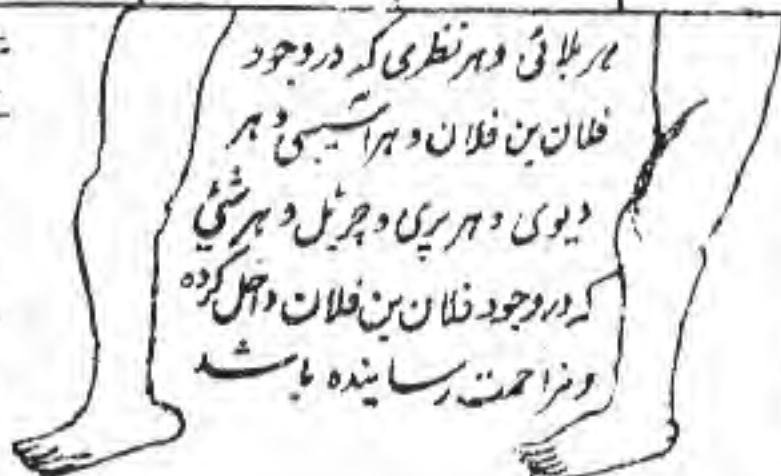 هر بلائی و هر نظری که در وجود
فلان بن فلان و هر آسیبی و هر
دیوی و هر پری و چریل و هر شئی
که در وجود فلان بن فلان داخل کرده
و مزاحمت رساینده باشد